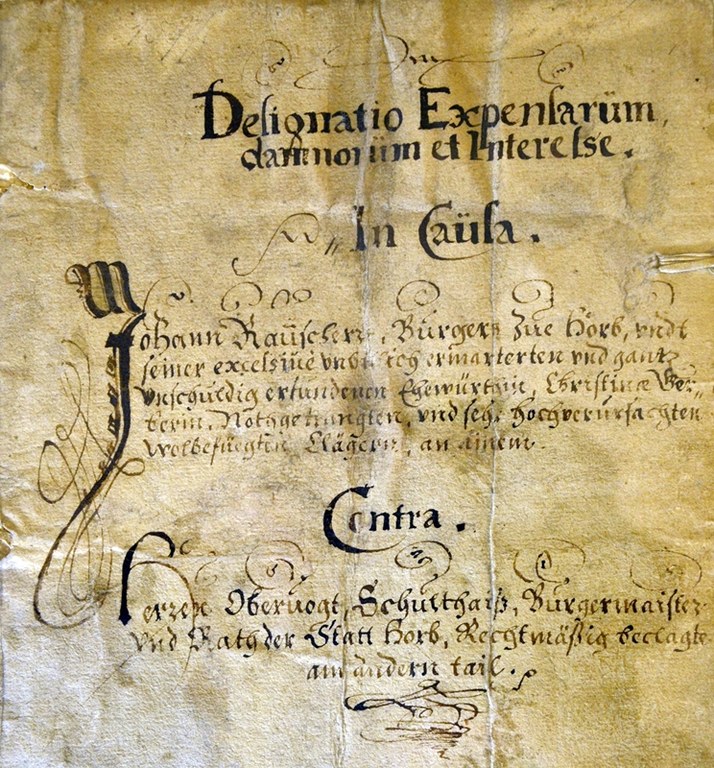 Designatio Expensarüm,
damnorüm et Interesse.
In Caüsa.
Johann Raüschers, Bürgers züe Horb, vndt
seiner excessiue vnd ermarterten vnd gantz
vnschuldig erfundenen Ehewürthin, Christinæ Ger-
berin, Nothgetrungten, vnd sehr hochverursachten
wolbefüegten Clägern, an ainem
Contra.
Herren Obervogt, Schulthaiß, Bürgermaister
vnd Rath der Statt Horb, Rechtmäßig beclagte
am andern tail.